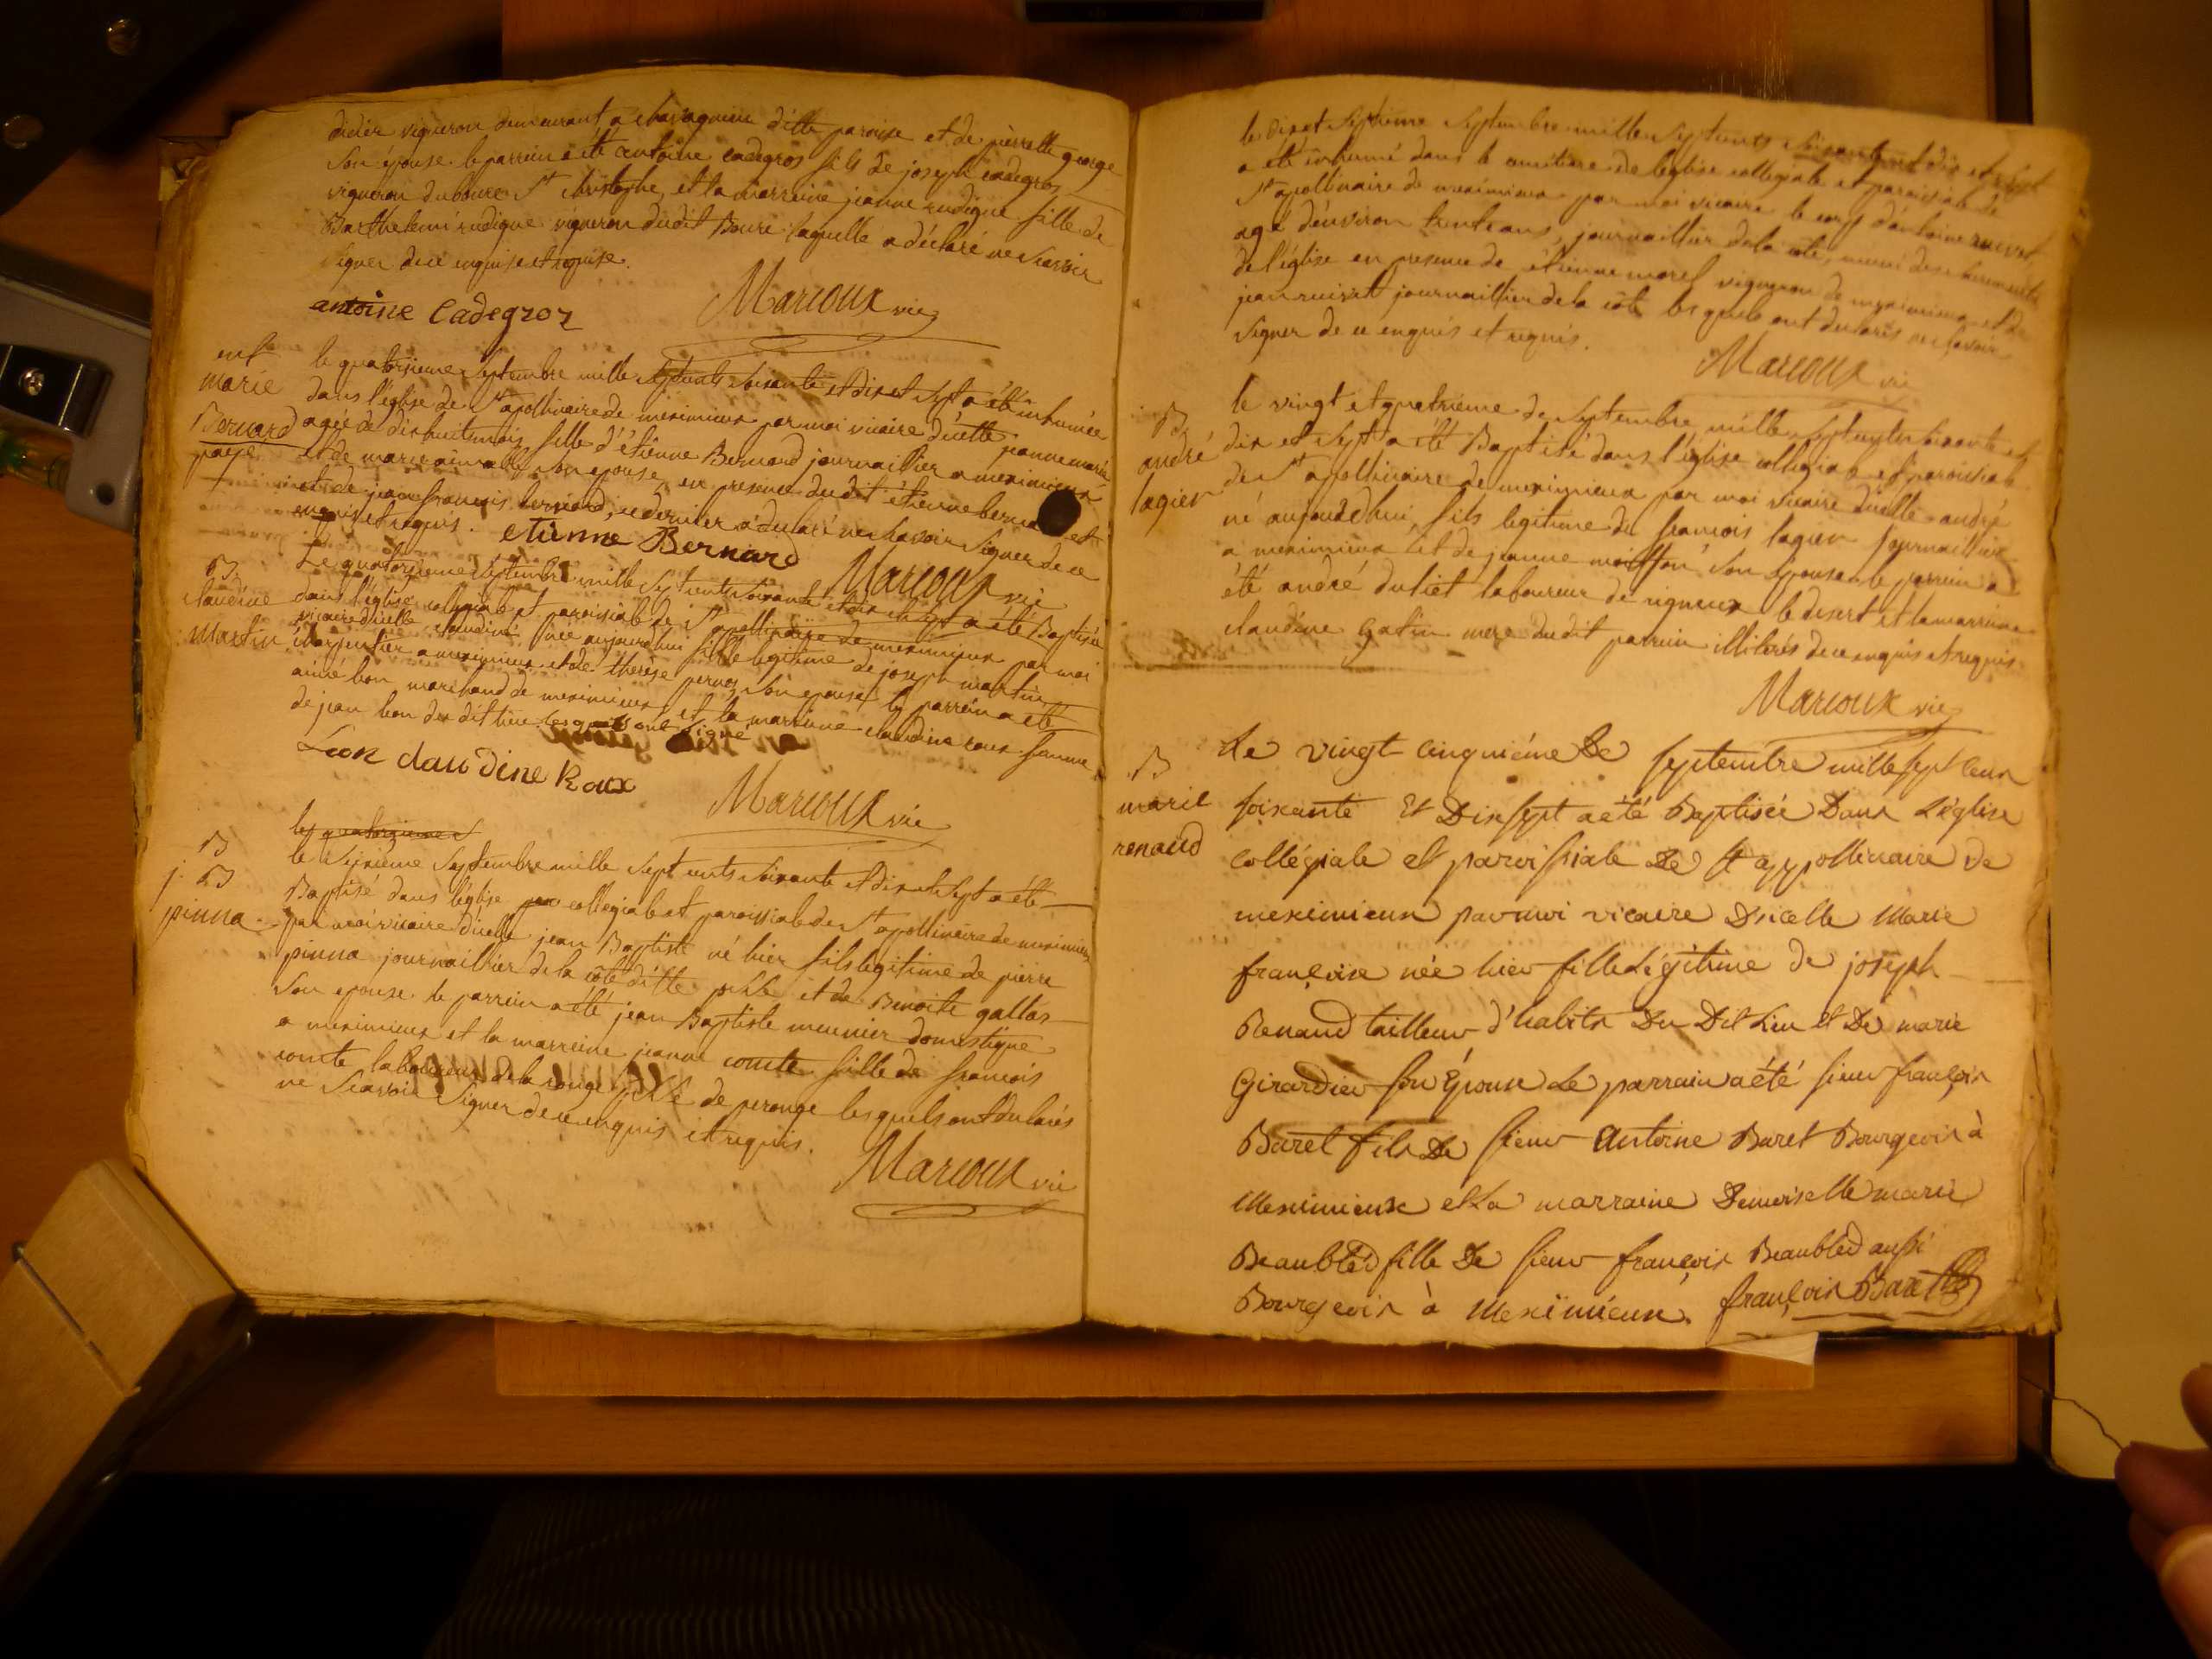 didier vigneron demeurant a chavagnieu ditte paroise et de pierrette george
son épouse. le parrein a été antoine cadegros fils de joseph cadegros
vigneron du boure St christophe, et la marreine jeanne rudigue fille de
Barthelemi rudigue vigneron dudit Boure laquelle a déclaré ne sçavoir
signer de ce enquise et requise.
antoine Cadegroz
Marcoux vic
ent
marie
Bernard
payé
le quatorsieme septembre mille septcents soixante et dix et sept a été inhumée
dans l'église de St apollinaire de meximieux par moi vicaire d'icelle jeanne marie
agée de dixhuit mois, fille d'étienne Bernard journaillier a meximieux
et de marie son épouse, en presence dudit étienne berna et
et de jean françois bernard, ce dernier a déclaré ne sçavoir signer de ce
enquis et requis. etienne Bernard
Marcoux vic
B
claudine
Martin
Le quatorsieme septembre mille septcents soixante et dix et sept a été Baptisée
dans l'église collegiale et paroissiale de St apollinaire de meximieux par moi
vicaire d'icelle claudine née aujourdhui fille legitime de joseph martin
charpentier a meximieux et de therese pernos son epouse. le parrein a été
aimé bon marchand de meximieux et la marreine claudine roux femme
de jean bon du dit lieu lesquels ont signé
claudine Roux
Marcoux vic
le quatorsieme s
B
j. B
pinna
le seisieme septembre mille septcents soixante et dix et sept a été
Baptisé dans l'église par collegiale et paroissiale de St apollinaire de meximieux
par moi vicaire d'icelle jean Baptiste né hier fils legitime de pierre
pinna journaillier de la côte ditte psse et de Benoite gallas
son epouse. le parrein a été jean Baptiste meunier domestique
a meximieux et la marreine jeanne comte fille de françois
comte laboureur de la psse de perouge lesquels ont déclarés
ne sçavoir signer de ce enquis et requis.
Marcoux vic
le dixet septieme septembre mille septcents soixante et dix et sept
a été inhumé dans le cimétiere de léglise collegiale et paroissiale de
St apollinaire de meximieux par moi vicaire le corps d'antoine ruivet
agé d'environ trente ans, journaillier de la côte, muni des sacrements
de l'église en presence de étienne morel vigneron de meximieux et de
jean ruivat journaillier de la côte lesquels ont declarés ne sçavoir
signer de ce enquis et requis.
Marcoux vic
B
andré
lagier
le vingt et quatrieme de septembre mille septcents soixante et
dix et sept a été Baptisé dans l'église collegiale et paroissiale
de St apollinaire de meximieux par moi vicaire d'icelle andré
né aujourdhui, fils legitime de françois lagier journaillier
a meximieux et de jeanne son épouse. le parrein a
été andré duliet laboureur de rigneux le desert et la marreine
claudine gatin mere dudit parrein illiterés de ce enquis et requis
Marcoux vic
B
marie
renaud
Le vingt-cinquiéme de septembre mille sept cens
soixante Et Dixsept a été Baptisée Dans L'église
collégiale et paroissiale de St appollinaire de
meximieux par moi vicaire d'icelle Marie
françoise née hier fille Légitime de joseph
Renaud tailleur d'habits Du Dit Lieu et De marie
Girardier son Épouse Le parrain a été sieur françois
Baret fils De sieur Antoine Baret Bourgeois à
Meximieux et La marraine Demoiselle marie
Beaubled fille De sieur françois Beaubled aussi
Bourgeois à Meximieux. françois Baret